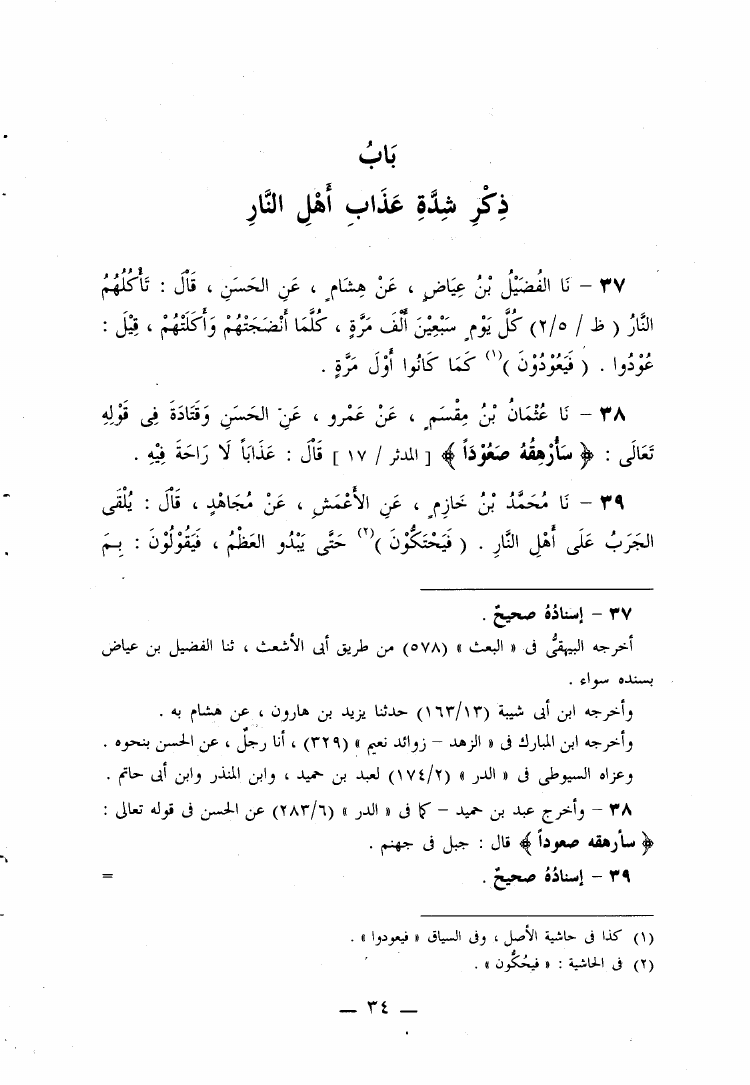 بَابُ
ذِكْرِ شِدَّةِ عَذَابِ أَهْلِ النَّارِ
٣٧ – نَا الفُضَيْلُ بْنُ عِيَاضٍ ، عَنْ هِشَامٍ ، عَنِ الحَسَنِ ، قَالَ : تَأْكُلُهُمُ
النَّارُ ( ظ / ٢/٥) كُلَّ يَوْمٍ سَبْعِيْنَ أَلْفَ مَرَّةٍ ، كُلَّمَا أَنْضَجَتْهُمْ وَأَكَلَتْهُمْ ، قِيْلَ :
عُوْدُوا . ( فَيَعُوْدُوْنَ )(١) كَمَا كَانُوا أَوَّلَ مَرَّةٍ .
٣٨ – نَا عُثْمَانُ بْنُ مِقْسَمٍ ، عَنْ عَمْرٍو ، عَنِ الحَسَنِ وَقَتَادَةَ فِى قَوْلِهِ
تَعَالَى : ﴿ سَأُرْهِقُهُ صَعُوْدَاً ﴾ [ المدثر / ١٧ ] قَالَ : عَذَابَاً لَا رَاحَةَ فِيْهِ .
٣٩ – نَا مُحَمَّدُ بْنُ خَازِمٍ ، عَنِ الأَعْمَشِ ، عَنْ مُجَاهْدٍ ، قَالَ : يُلْقَى
الجَرَبُ عَلَى أَهْلِ النَّارِ . ( فَيَحْتَكُّوْنَ )(٢) حَتَّى يَبْدُو العَظْمُ ، فَيَقُوْلُوْنَ : بِمَ
٣٧ – إسنادُهُ صحيحٌ .
أخرجه البيهقىُّ فى « البعث » (٥٧٨) من طريق أبى الأشعث ، ثنا الفضيل بن عياض
بسنده سواء .
وأخرجه ابن أبى شيبة (١٦٣/١٣) حدثنا يزيد بن هارون ، عن هشام به .
وأخرجه ابن المبارك فى « الزهد – زوائد نعيم » (٣٢٩) ، أنا رجلٌ ، عن الحسن بنحوه .
وعزاه السيوطى فى « الدر » (١٧٤/٢) لعبد بن حميد ، وابن المنذر وابن أبى حاتم .
٣٨ – وأخرج عبد بن حميد – كما فى « الدر » (٢٨٣/٦) عن الحسن فى قوله تعالى :
﴿ سأرهقه صعوداً ﴾ قال : جبل فى جهنم .
٣٩ – إسنادُهُ صحيحٌ . =
(١) كذا فى حاشية الأصل ، وفى السياق « فيعودوا » .
(٢) فى الحاشية : « فيحُكُّون » .
— ٣٤ —